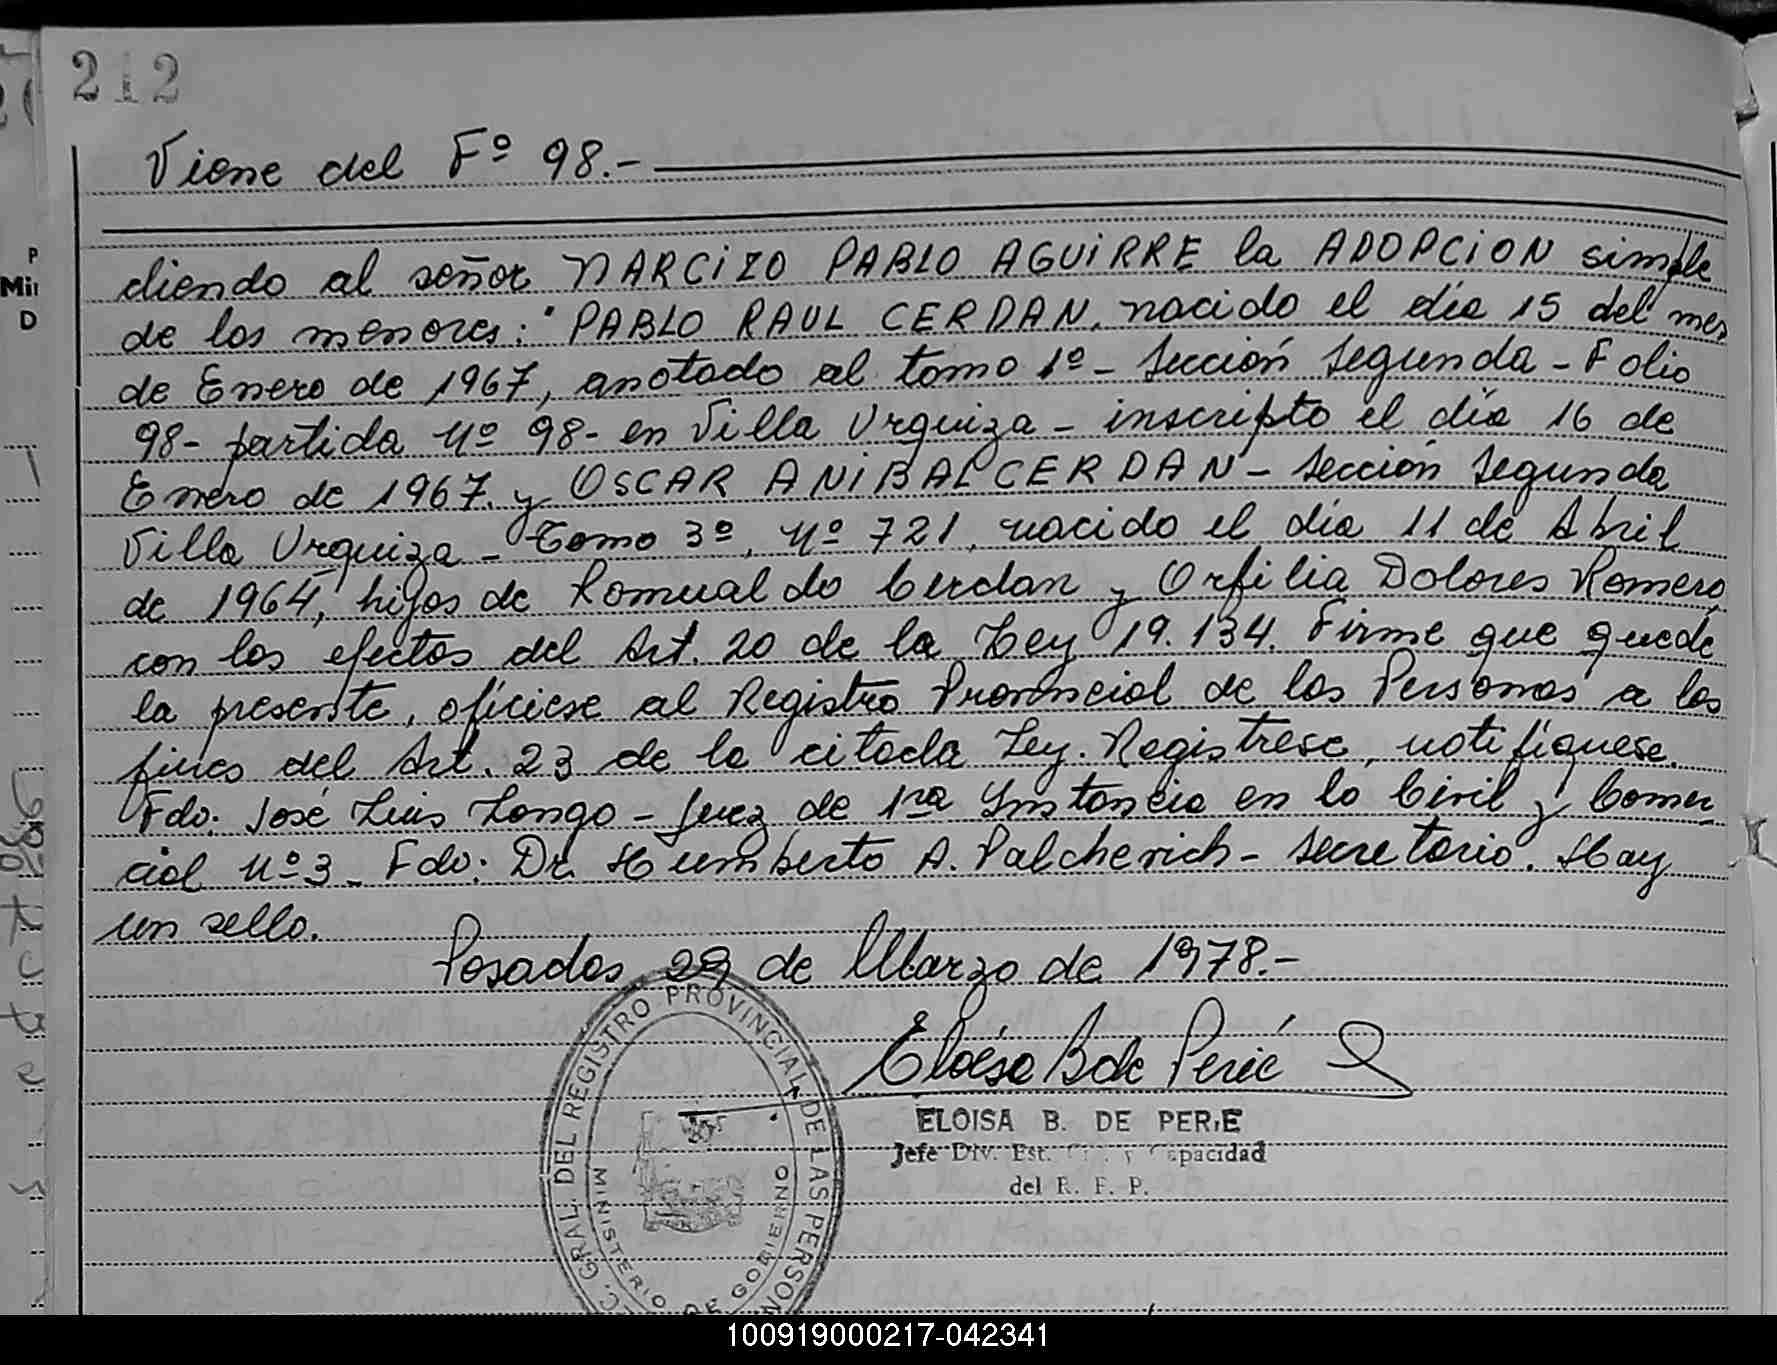 212
Viene del Fº 98.-
diendo al señor NARCIZO PABLO AGUIRRE la ADOPCION simple
de los menores: PABLO RAUL CERDAN, nacido el día 15 del mes
de Enero de 1967, anotado al tomo 1º - Sección Segunda - Folio
98- partida Nº 98- en Villa Urquiza - inscripto el día 16 de
Enero de 1967. y OSCAR ANIBAL CERDAN - Sección Segunda
Villa Urquiza - Tomo 3º, Nº 721, nacido el día 11 de Abril
de 1964, hijos de Romualdo Cerdan y Orfilia Dolores Romero,
con los efectos del Art. 20 de la Ley 19.134. Firme que quede
la presente, ofíciese al Registro Provincial de las Personas a los
fines del Art. 23 de la citada Ley. Registrese, notifíquese.
Fdo. José Luis Longo - Juez de 1ra Instancia en lo Civil y Comer
cial Nº 3 - Fdo: Dr. Humberto A. Palcherich - Secretario. Hay
un sello.
Posadas 29 de Marzo de 1978.-
GRAL. DEL REGISTRO PROVINCIAL DE LAS PERSON
MINISTERIO DE GOBIERNO
Eloísa B de Perié
ELOISA B. DE PERIE
Jefe Div. Est. y Capacidad
del R. P. P.
P
Mi
D
100919000217-042341